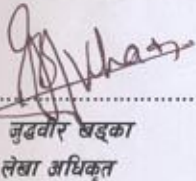 जुद्धवीर खड्का
लेखा अधिकृत